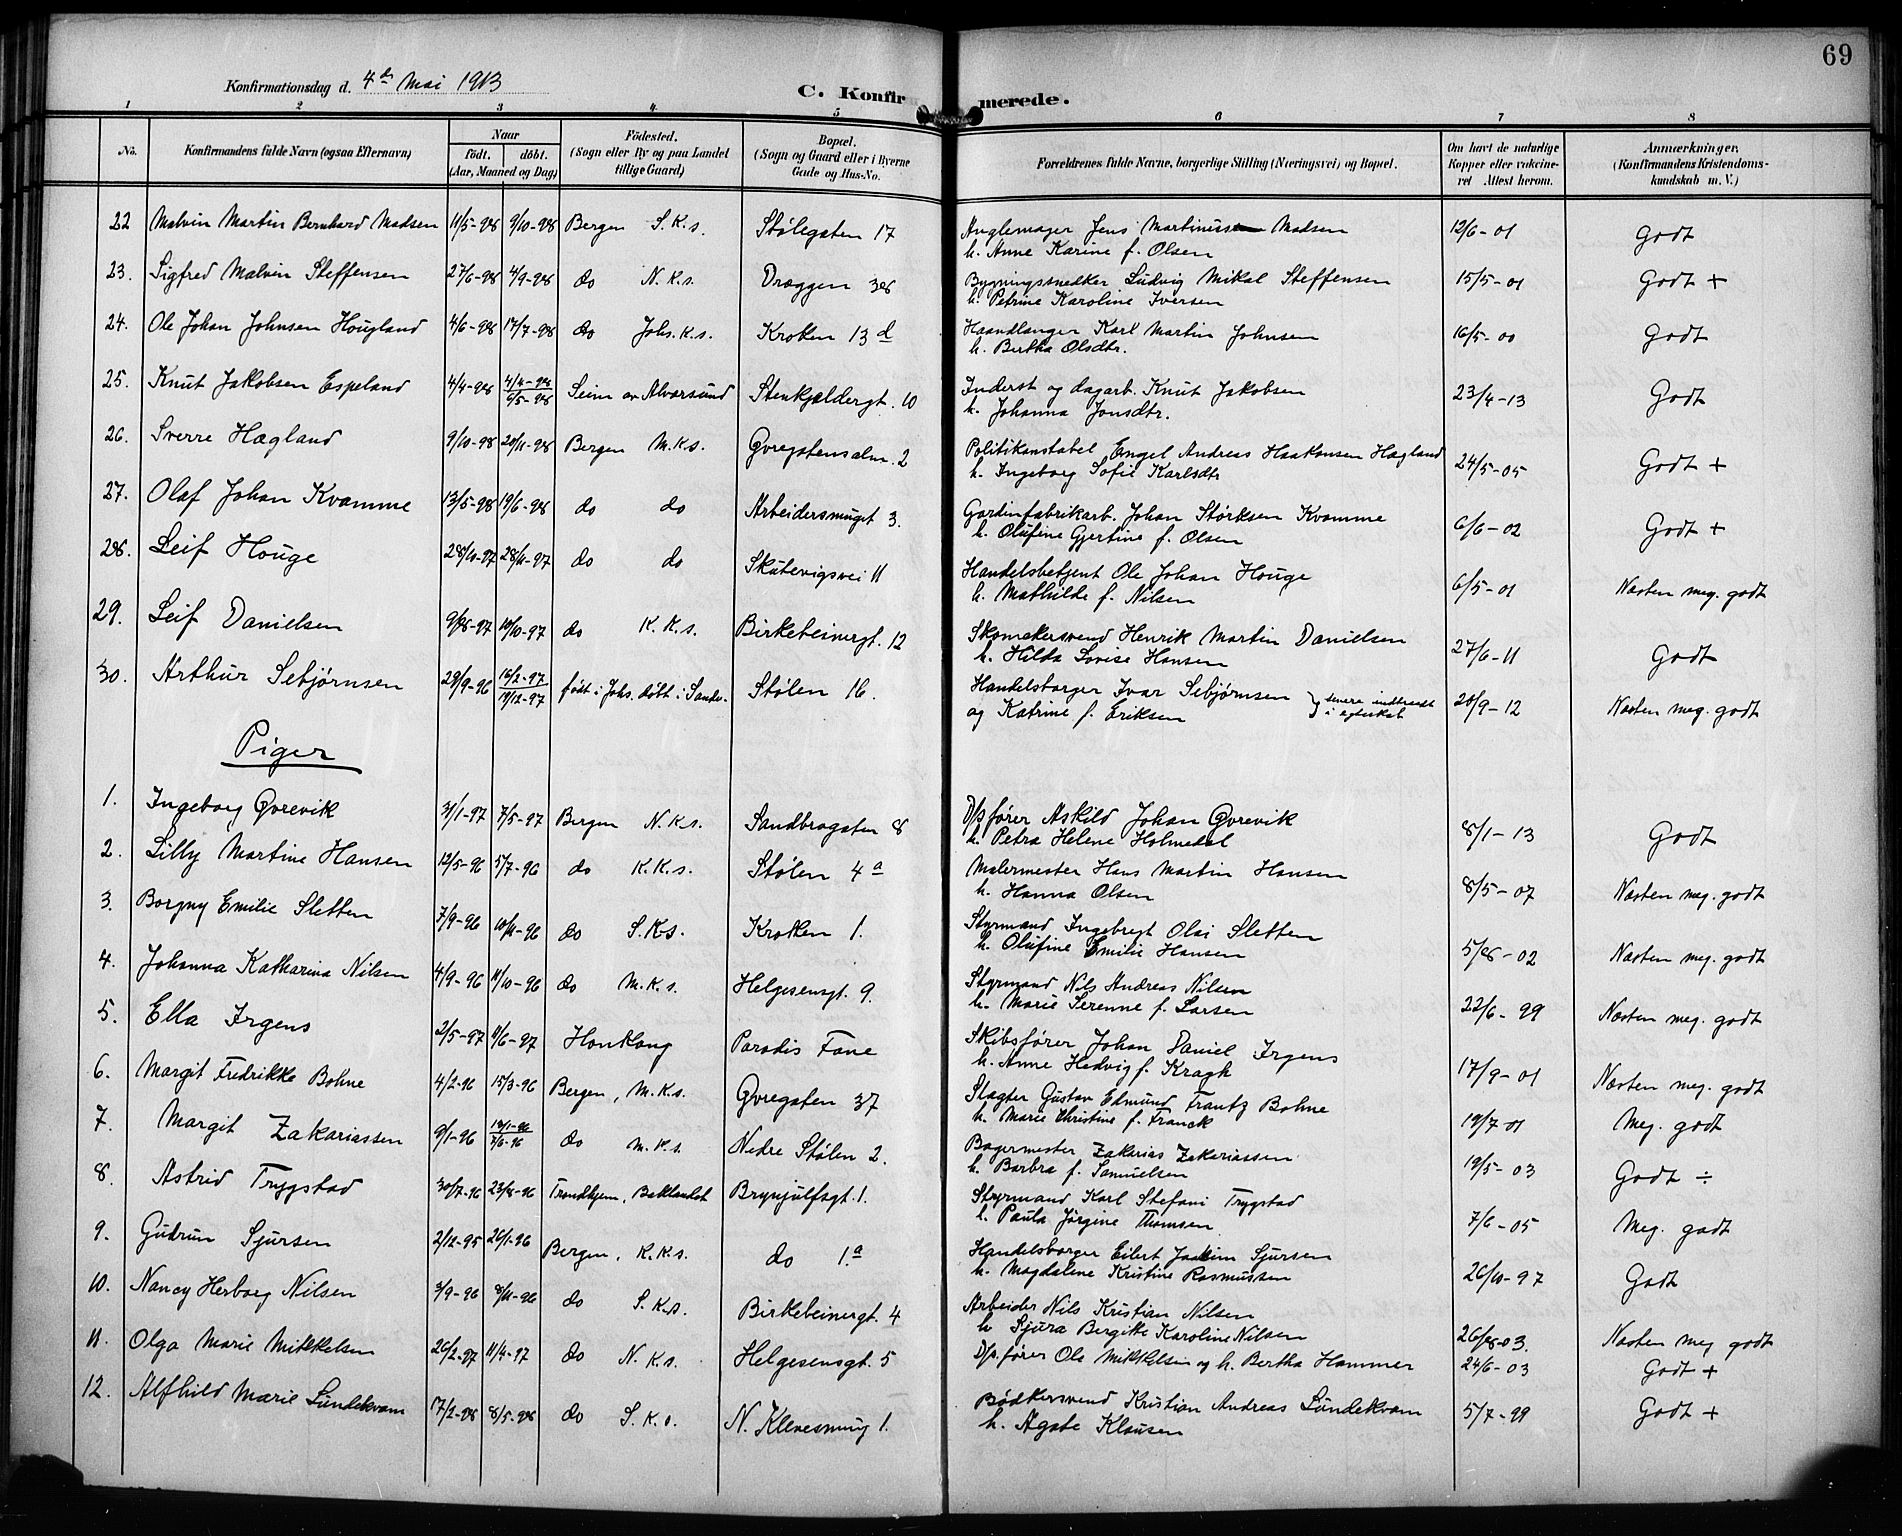 69
Konfirmationsdag d. 4de Mai 1913
C. Konfirmerede.
1 2 3 4 5 6 7 8
No. Konfirmandens fulde Navn (ogsaa Efternavn) Naar födt. döbt. (Aar, Maaned og Dag) Födested. (Sogn eller By og paa Landet tillige Gaard) Bopæl. (Sogn og Gaard eller i Byerne Gade og Hus-No. Forældrenes fulde Navne, borgerlige Stilling (Næringsvei) og Bopæl. Om havt de naturlige Kopper eller vakcineret. Attest herom. Anmærkninger. (Konfirmandens Kristendomskundskab m. V.)
22 Malvin Martin Bernhard Madsen 11/5-98 9/10-98 Bergen S.K.s. Stölegaten 17 Anglemager Jens Martinius Madsen 12/6-01 Godt
h. Anne Karine f. Olsen
23. Sigfred Malvin Steffensen 27/6-98 4/9-98 do N.K.s. Dræggen 38 Bygningssnedker Ludvig Mikal Steffensen 15/5-01 Godt +
h. Petrine Karoline Iversen
24. Ole Johan Johnsen Hougland 4/6-98 17/7-98 do Johs.K.s. Kroken 13 d Haandlanger Karl Martin Johnsen 16/5-00 Godt
h. Bertha Olsdtr.
25. Knut Jakobsen Espeland 4/4-98 4/4-98 6/5-98 Seim av Alvarsund Stenkjældergt. 10 Inderst og dagarb. Knut Jakobsen 23/4-13 Godt
h. Johanna Jonsdtr.
26. Sverre Hægland 9/10-98 20/11-98 Bergen M.K.s. Øvregatensalm. 2 Politikonstabel Engel Andreas Haakonsen Hægland 24/5-05 Godt +
h. Ingeborg Sofie Karlsdtr
27. Olaf Johan Kvamme 13/5-98 19/6-98 do do Arbeidersmuget 3. Gardinfabrikarb. Johan Störksen Kvamme 6/6-02 Godt +
h. Olufine Gjertine f. Olsen
28. Leif Houge 28/10-97 28/11-97 do do Skutevigsvei 11 Handelsbetjent Ole Johan Houge 6/5-01 Næsten meg. godt
h. Mathilde f. Nilsen
29. Leif Danielsen 9/8-97 10/10-97 do K.K.s. Birkebeinergt. 12 Skomakersvend Henrik Martin Danielsen 27/6-11 Godt
h. Hilda Lovise Hansen
30. Arthur Sebjørnsen 29/9-96 16/2-97 19/12-97 födt i Johs. döbt i Sandv. Stølen 16. Handelsborger Ivar Sebjørnsen } senere indtraadt 20/9-12 Næsten meg. godt
og Katrine f. Eriksen i egteskab
Piger
1. Ingeborg Øvrevik 31/1-97 7/5-97 Bergen N.K.s. Sandbrogaten 8 D/pförer Askild Johan Øvrevik 8/1-13 Godt
h. Petra Helene Holmedal
2. Lilly Martine Hansen 12/5-96 5/7-96 do K.K.s. Stølen 4 a Malermester Hans Martin Hansen 8/5-07 Næsten meg. godt
h. Hanna Olsen
3. Borgny Emilie Sletten 7/9-96 10/11-96 do S.K.s. Kroken 1. Styrmand Ingebregt Olai Sletten 5/8-02 Næsten meg. godt
h. Olufine Emilie Hansen
4. Johanna Katharina Nilsen 4/9-96 11/10-96 do M.K.s. Helgesensgt. 9. Styrmand Nils Andreas Nilsen 22/6-99 Næsten meg. godt
h. Marie Serenne f. Larsen
5. Ella Irgens 2/5-97 11/6-97 Honkong Paradis Fane Skibsförer Johan Daniel Irgens 17/9-01 Næsten meg. godt
h. Anne Hedvig f. Kragh
6. Margit Fredrikke Bohne 4/2-96 15/3-96 Bergen, M.K.s. Øvregaten 37 Slagter Gustav Edmund Frantz Bohne 19/7 01 Meg. godt
h. Marie Christine f. Franck
7. Margit Zakariassen 9/1-96 do M.K.s. Nedre Stølen 2. Bagermester Zakarias Zakariassen 19/5-03 Godt ÷
h. Barbra f. Samuelsen
8. Astrid Trygstad 30/7-96 23/8-96 Trondhjem, Baklandet Brynjulfsgt. 1. Styrmand Karl Stefani Trygstad 7/6-05 Meg. godt
h. Paula Jörgine Thomsen
9. Gudrun Sjursen 2/12-95 26/1-96 Bergen, K.K.s. do 1.a Handelsborger Eilert Joakim Sjursen 26/10-97 Godt
h. Magdalene Kristine Rasmussen
10. Nancy Herborg Nilsen 3/9-96 8/11-96 do S.K.s. Birkebeinergt. 4 Arbeider Nils Kristian Nilsen 26/8-03. Næsten meg godt
h Sjura Bergitte Karoline Nilsen
11. Olga Marie Mikkelsen 26/2-97 11/4-97 do N.K.s. Helgesensgt. 5 D/p.förer Ole Mikkelsen og h. Bertha Hammer 24/6-03 Godt +
12. Alfhild Marie Lundekvam 17/2-98 8/5-98 do S.K.s. N. Klevesmug 1. Bödkersvend Kristian Andreas Lundekvam 5/7-99 Godt +
h. Agate Klausen